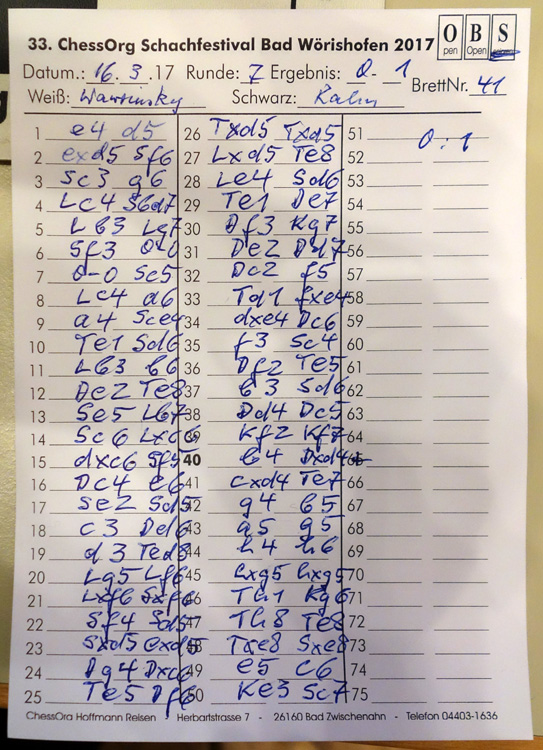 33. ChessOrg Schachfestival Bad Wörishofen 2017
O B S
pen Open
Datum.: 16.3.17 Runde: 7 Ergebnis: 0 - 1
Weiß: Schwarz: Kahn BrettNr. 41
1 e4 d5 26 Txd5 Txd5 51 0:1
2 exd5 Sf6 27 Lxd5 Te8 52
3 Sc3 g6 28 Le4 Sd6 53
4 Lc4 Sbd7 29 Te1 De7 54
5 Lb3 Lg7 30 Df3 Kg7 55
6 Sf3 0-0 31 De2 Dd7 56
7 0-0 Sc5 32 Dc2 f5 57
8 Lc4 a6 33 Td1 fxe4 58
9 a4 Sce4 34 dxe4 Dc6 59
10 Te1 Sd6 35 f3 Sc4 60
11 Lb3 b6 36 Df2 Te5 61
12 De2 Te8 37 b3 Sd6 62
13 Se5 Lb7 38 Dd4 Dc5 63
14 Sc6 Lxc6 39 Kf2 Kf7 64
15 dxc6 Sf5 40 b4 Dxd4 65
16 Dc4 e6 41 cxd4 Te7 66
17 Se2 Sd5 42 g4 b5 67
18 c3 Dd6 43 a5 g5 68
19 d3 Ted8 44 h4 h6 69
20 Lg5 Lf6 45 hxg5 hxg5 70
21 Lxf6 Sxf6 46 Th1 Kg6 71
22 Sf4 Sd5 47 Th8 Te8 72
23 Sxd5 exd5 48 Txe8 Sxe8 73
24 Dg4 Dxc6 49 e5 c6 74
25 Te5 Df6 50 Ke3 Sc7 75
ChessOrg Hoffmann Reisen - Herbartstrasse 7 - 26160 Bad Zwischenahn - Telefon 04403-1636